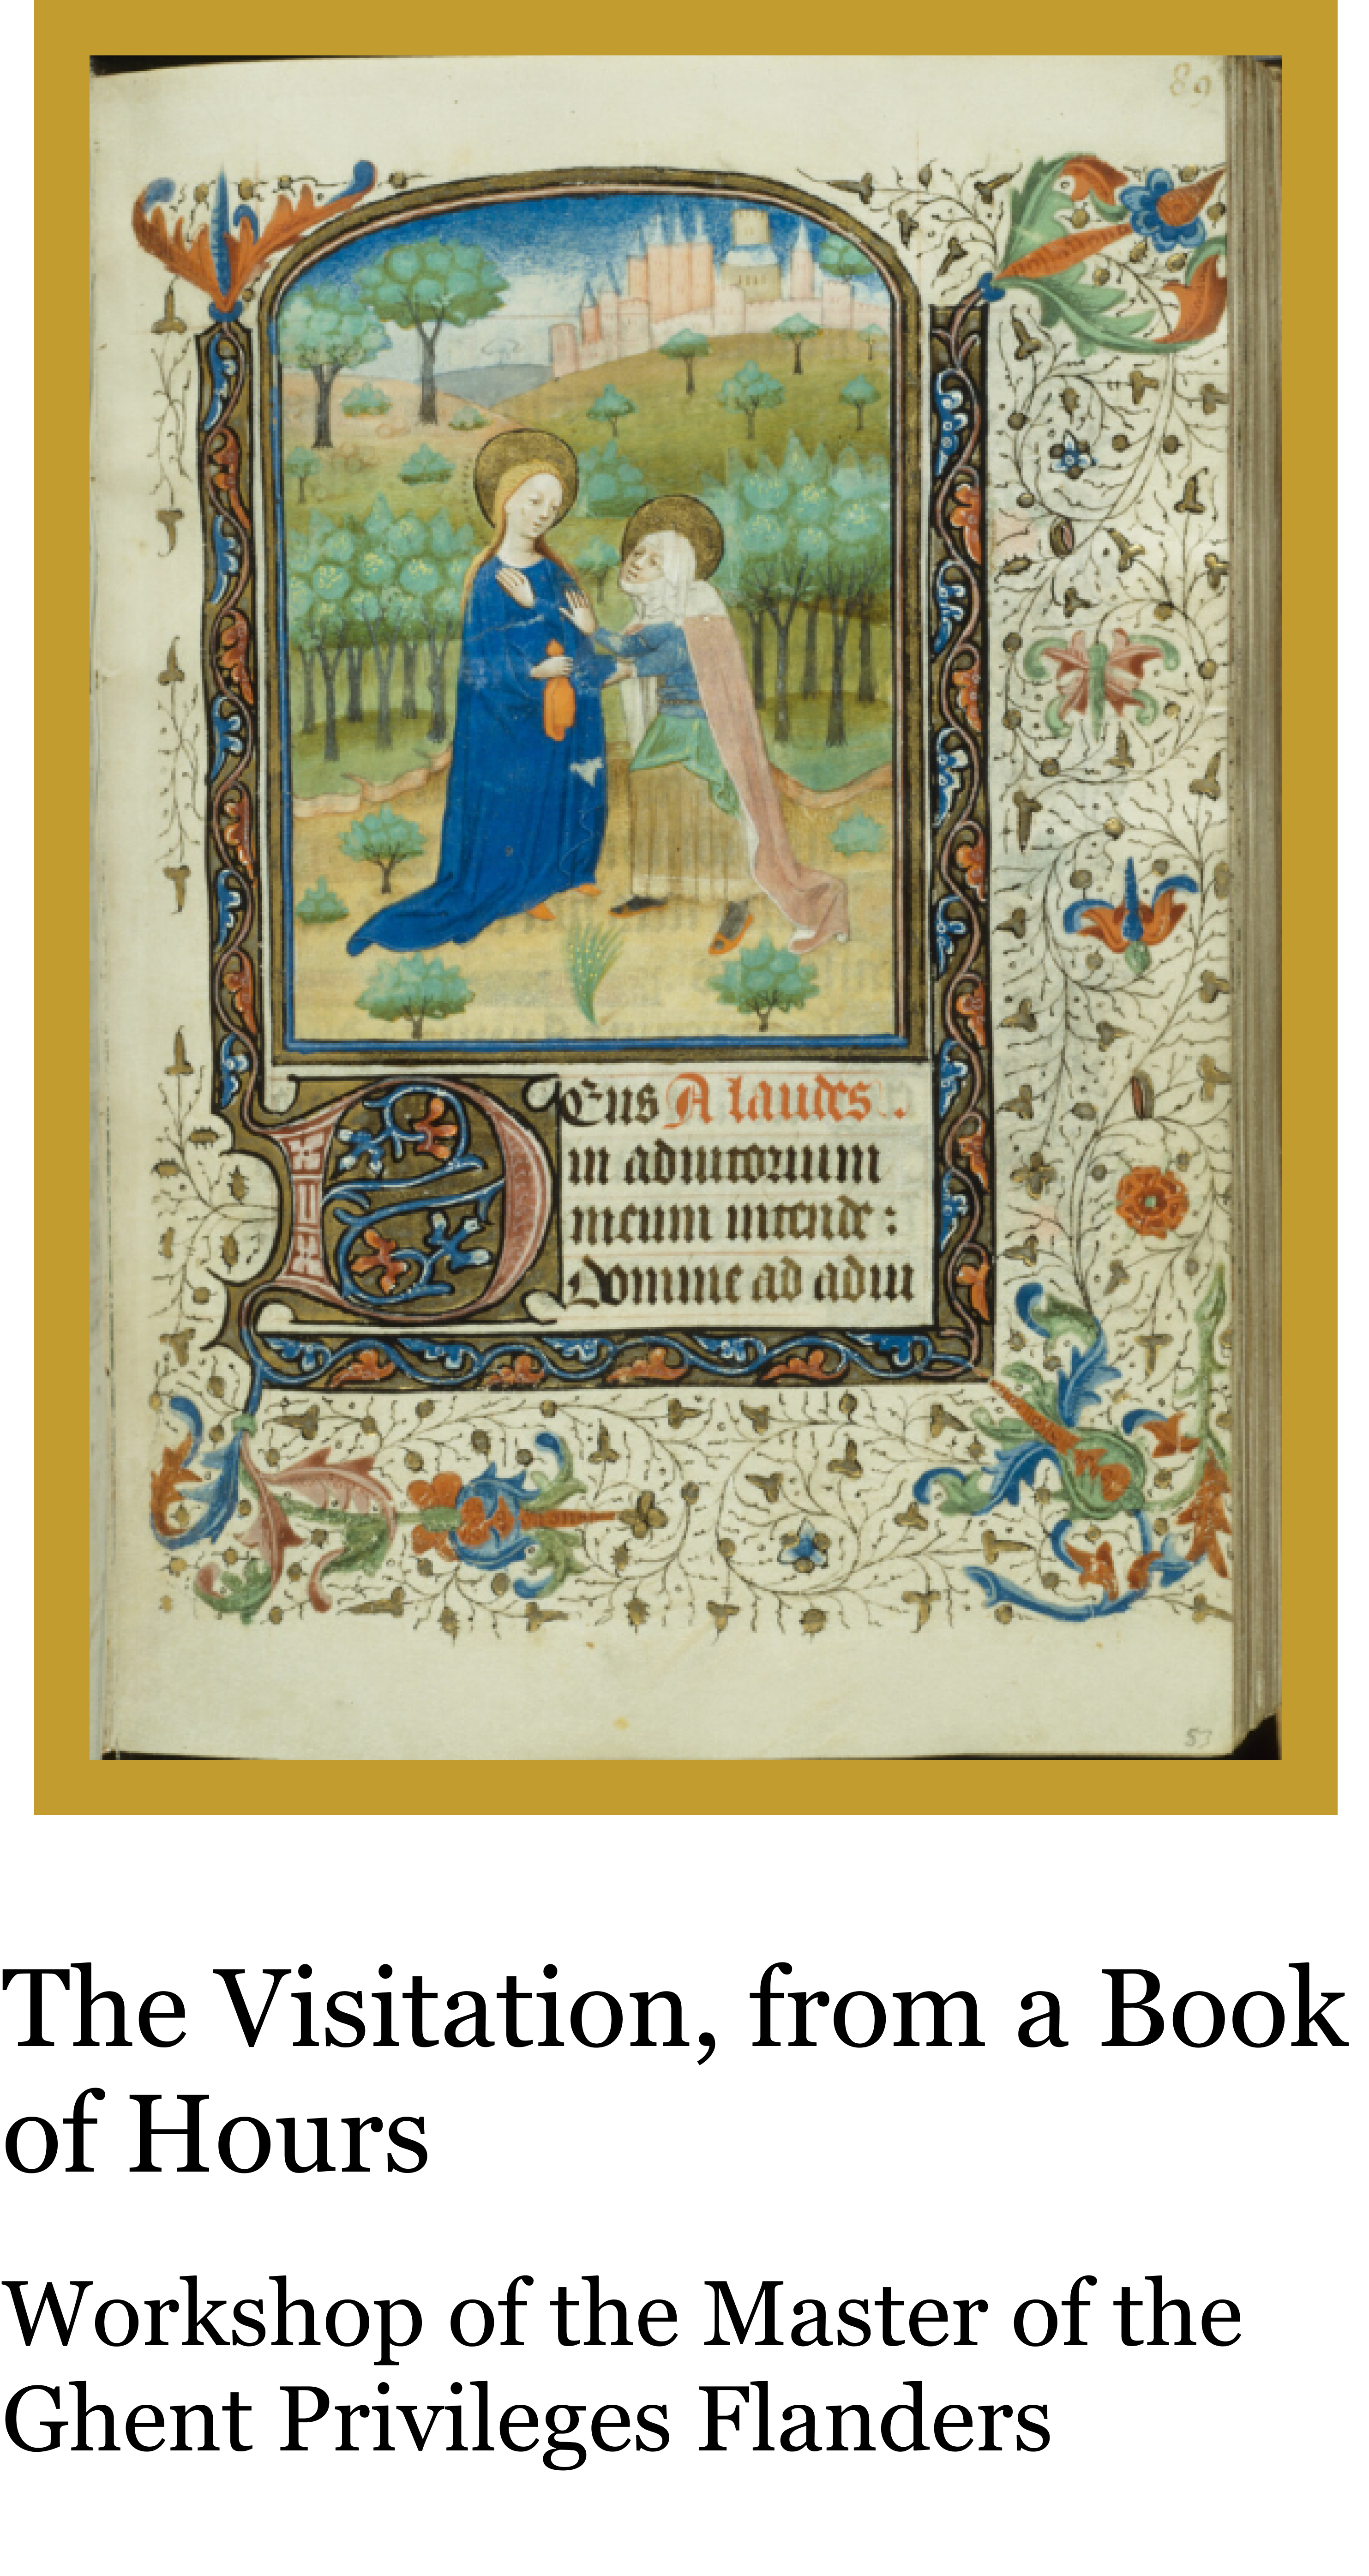 89
Deus A laudes.
in adiutorium
meum intende:
Domine ad adiu
53
The Visitation, from a Book
of Hours
Workshop of the Master of the
Ghent Privileges Flanders